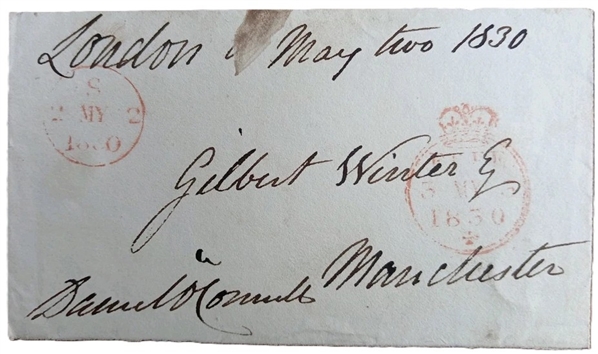 London May two 1830
S
2 MY 2
1830
Gilbert Winter Eq
3 MY
1830
Manchester
Daniel O'Connell